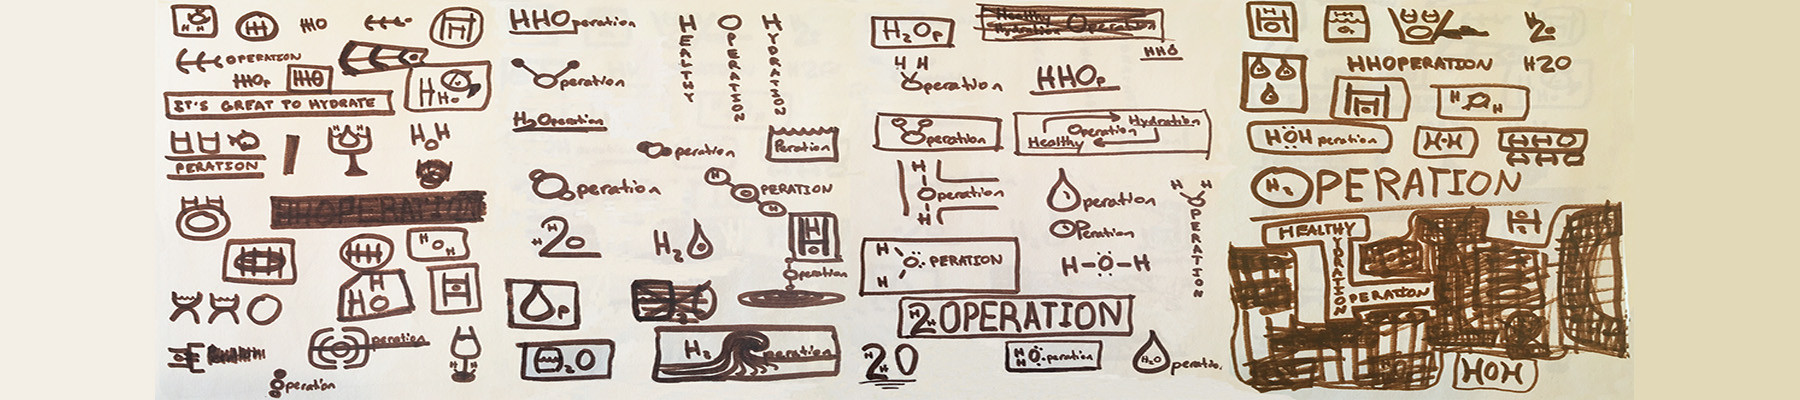 HHO
OPERATION
HHOp
HHO
IT'S GREAT TO HYDRATE
PERATION
HHOPERATION
HOH
peration
peration
HHOperation
HEALTHY
OPERATION
HYDRATION
Operation
H2Operation
Operation
Peration
Operation
PERATION
H2O
H2
Operation
p
2O
H2
peration
H2Op
Healthy
Hydration Operation
HHO
HH
Operation
HHOp
Operation
Hydration
Operation
Healthy
H
Operation
H
Operation
OPeration
H-Ö-H
HH
OPERATION
H
O: PERATION
H
H2OPERATION
H2O
HHO-peration
H2O
peration
H2O
HHOPERATION
H2O
HOH
HÖH peration
H·H
H2OPERATION
HEALTHY
HYDRATION
OPERATION
HOH